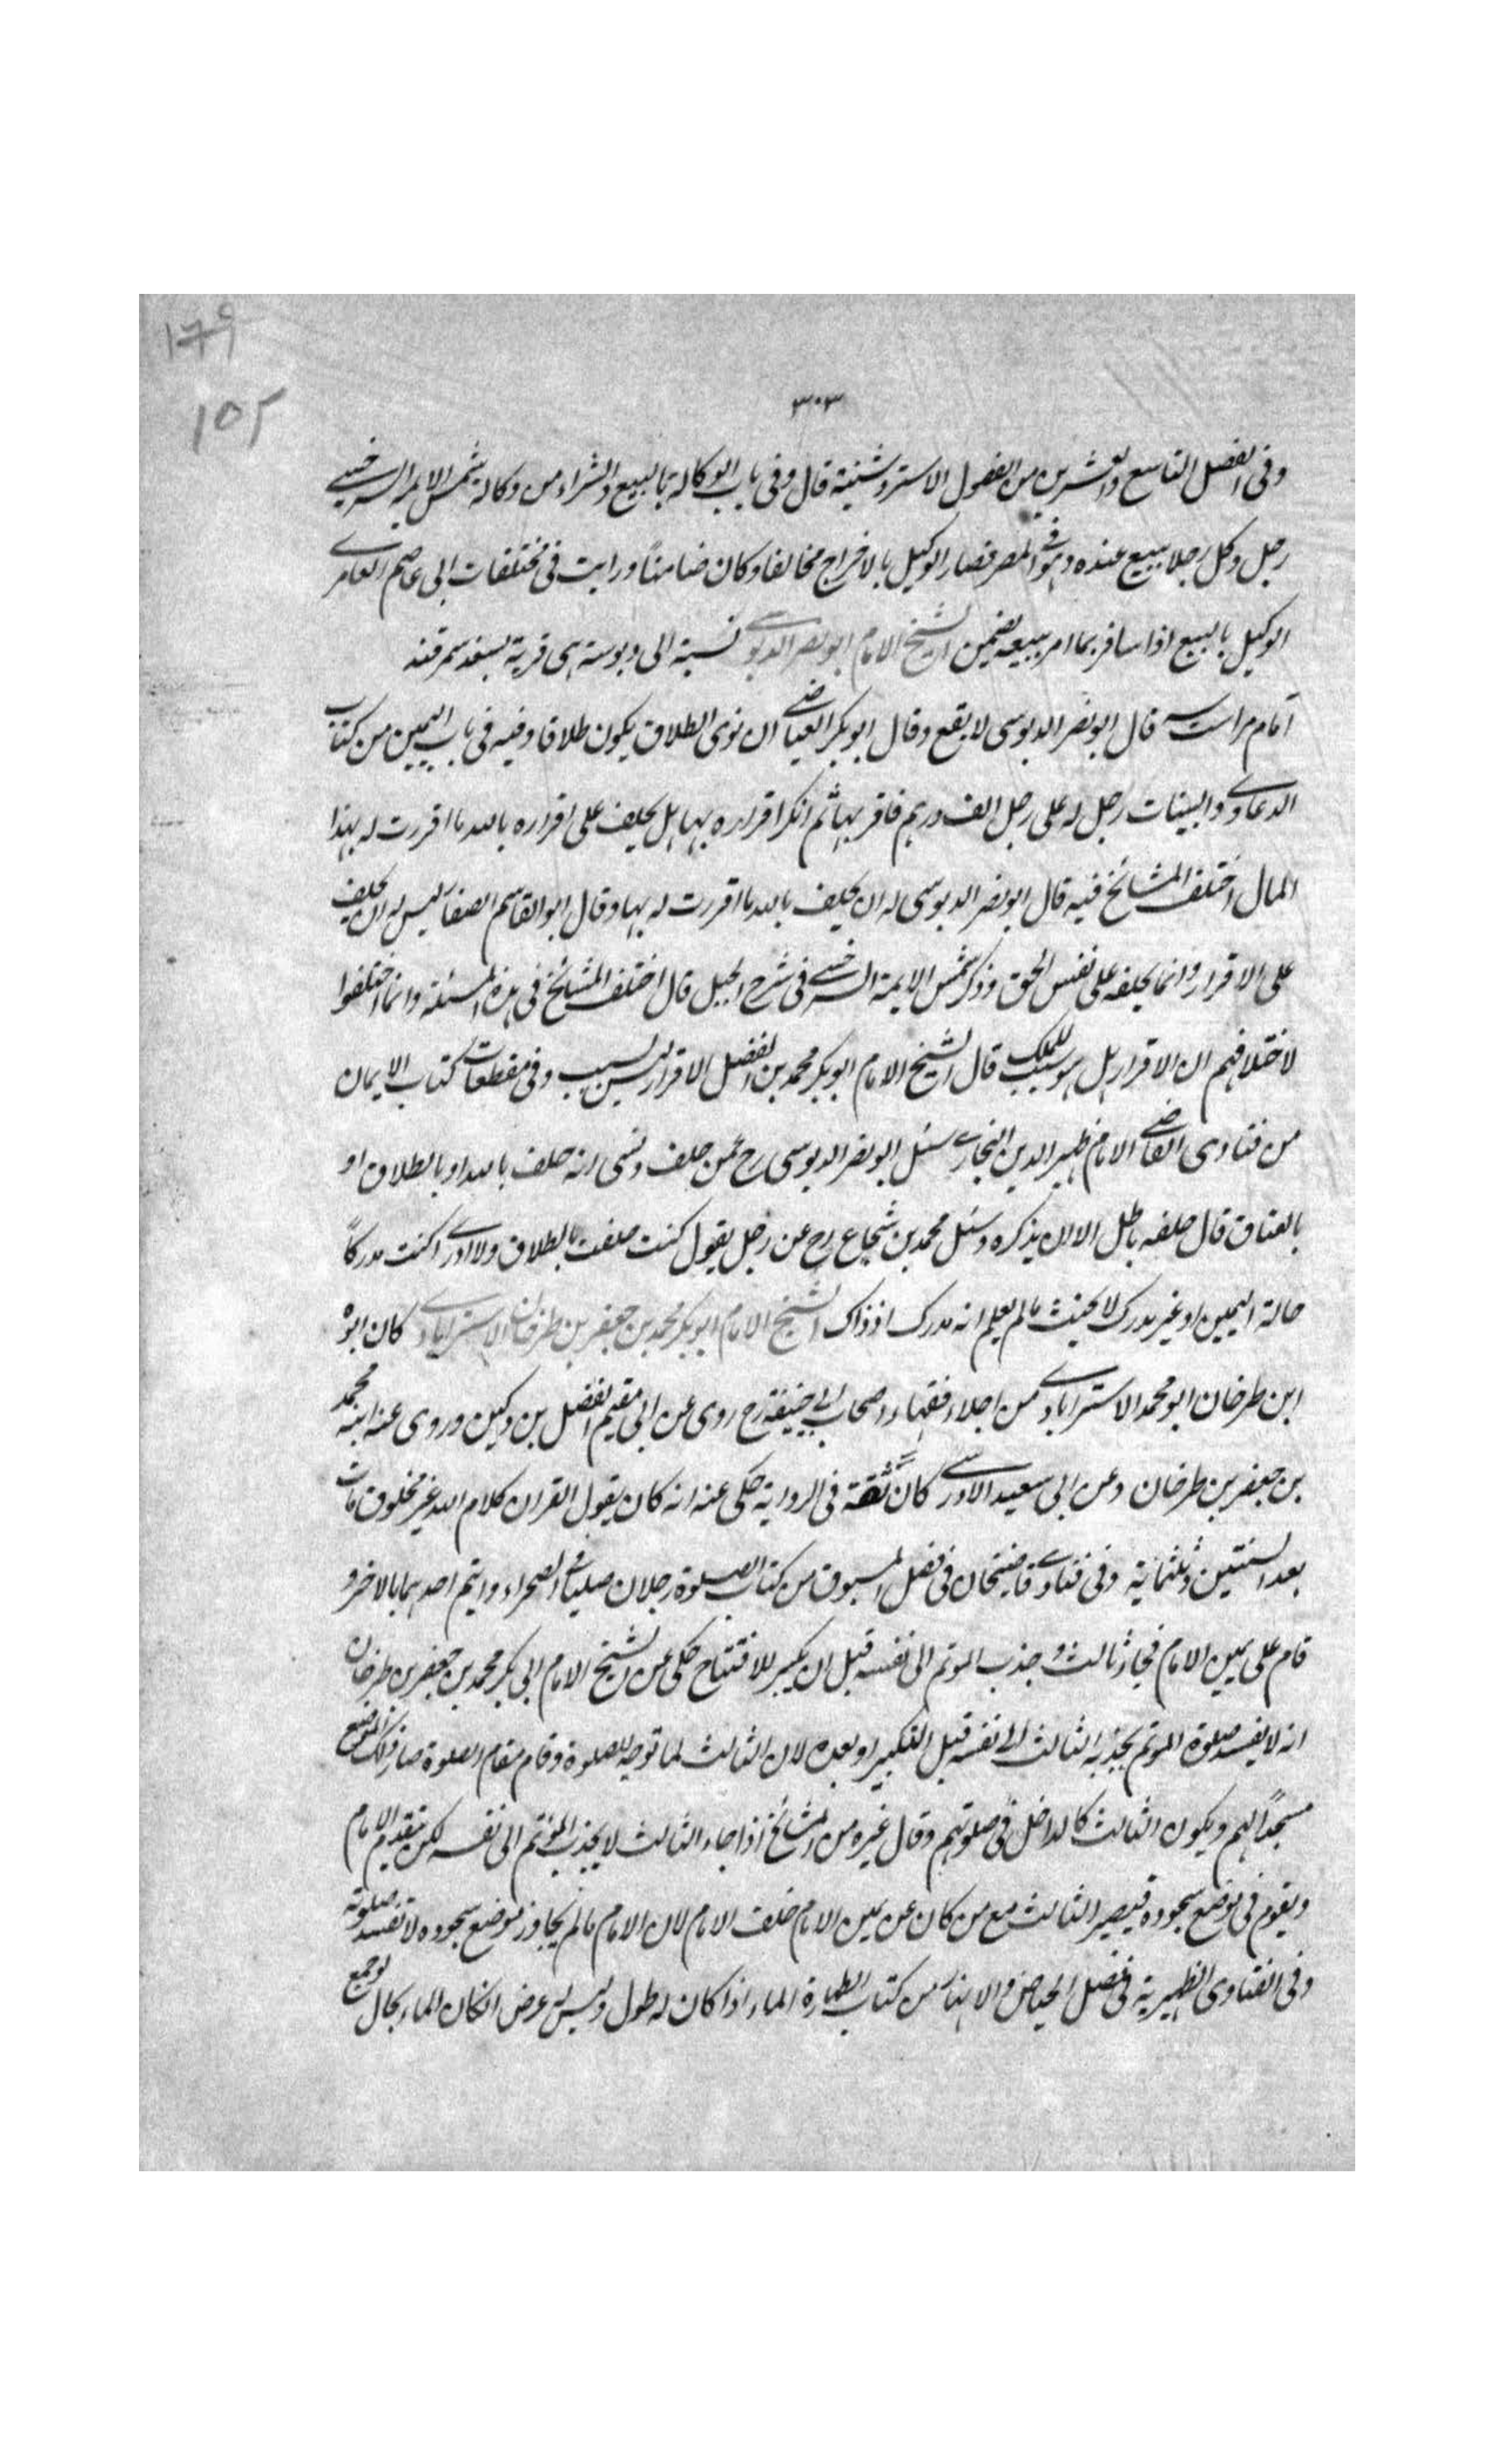 ١٧٩
١٥٢
٣٠٣
وفى الفصل التاسع والعشرين من الفصول الاستروشنية قال وفى باب الوكالة بالبيع والشراء من وكالة شمس الايمة السرخسى
رجل وكل رجلا ببيع عنده وهو فى المصر فصار الوكيل بالاخراج مخالفا وكان ضامنا ورايت فى مختلفات ابى عاصم العامرى
الوكيل بالبيع اذا سافر بما امر ببيعه يضمن الشيخ الامام ابو نصر الدبوسى نسبة الى دبوسة هى قرية بسغد سمرقند
قال ابو نصر الدبوسى لا يقع وقال ابو بكر العياضى ان نوى الطلاق يكون طلاقا وفيه فى باب اليمين من كتاب
الدعاوى والبينات رجل له على رجل الف درهم فاقر بها ثم انكر اقراره بها هل يحلف على اقراره بالله ما اقررت له بهذا
المال اختلف المشائخ فيه قال ابو نصر الدبوسى له ان يحلف بالله ما اقررت له بها وقال ابو القاسم الصفار ليس له ان يحلف
على الاقرار وانما يحلفه على نفس الحق وذكر شمس الايمة السرخسى فى شرح الحيل قال اختلف المشائخ فى هذه المسئلة وانما اختلفوا
لاختلافهم ان الاقرار هل هو سبب للملك قال الشيخ الامام ابو بكر محمد بن الفضل الاقرار ليس بسبب وفى مقطعات كتاب الايمان
من فتاوى القاضى الامام ظهير الدين البخارى سئل ابو نصر الدبوسى رح عمن حلف ونسى انه حلف بالله او بالطلاق او
بالعتاق قال حلفه باطل الا ان يذكره وسئل محمد بن شجاع رح عن رجل يقول كنت حلفت بالطلاق ولا ادرى اكنت مدركاً
حالة اليمين او غير مدرك لا يحنث ما لم يعلم انه مدرك اذ ذاك الشيخ الامام ابو بكر محمد بن جعفر بن طرخان الاسترابادى كان ابوه
ابن طرخان ابو محمد الاسترابادى من اجلاء فقهاء اصحاب ابى حنيفة رح روى عن ابى مقيم الفضل بن دكين وروى عنه ابنه محمد
بن جعفر بن طرخان وعن ابى سعيد الادريسى كان ثقة فى الرواية حكى عنه انه كان يقول القران كلام الله غير مخلوق مات
بعد الستين وثلثمائة وفى فتاوى قاضيخان فى فصل المسبوق من كتاب الصلوة رجلان صليا فى الصحراء وايتم احدهما بالاخر و
قام على يمين الامام فجاز ثالث وجذب الموتم الى نفسه قبل ان يكبر للافتتاح حكى عن الشيخ الامام ابى بكر محمد بن جعفر بن طرخان
انه لا يفسد صلوة الموتم بجذبه الثالث الى نفسه قبل التكبير او بعده لان الثالث لما توجه للصلوة وقام مقام الصلوة صار ذلك الموضع
مسجداً لهم ويكون الثالث كالداخل فى صلوتهم وقال غيره من المشائخ اذا جاء الثالث لا يجذب الموتم الى نفسه لكن يتقدم الامام
ويقوم فى موضع سجوده فيصير الثالث مع من كان عن يمين الامام خلف الامام لان الامام ما لم يجاوز موضع سجوده لا تفسد صلوته
وفى الفتاوى الظهيرية فى فصل الحياض والانهار من كتاب الطهارة الماء اذا كان له طول وليس له عرض انكان الماء بحال لو جمع